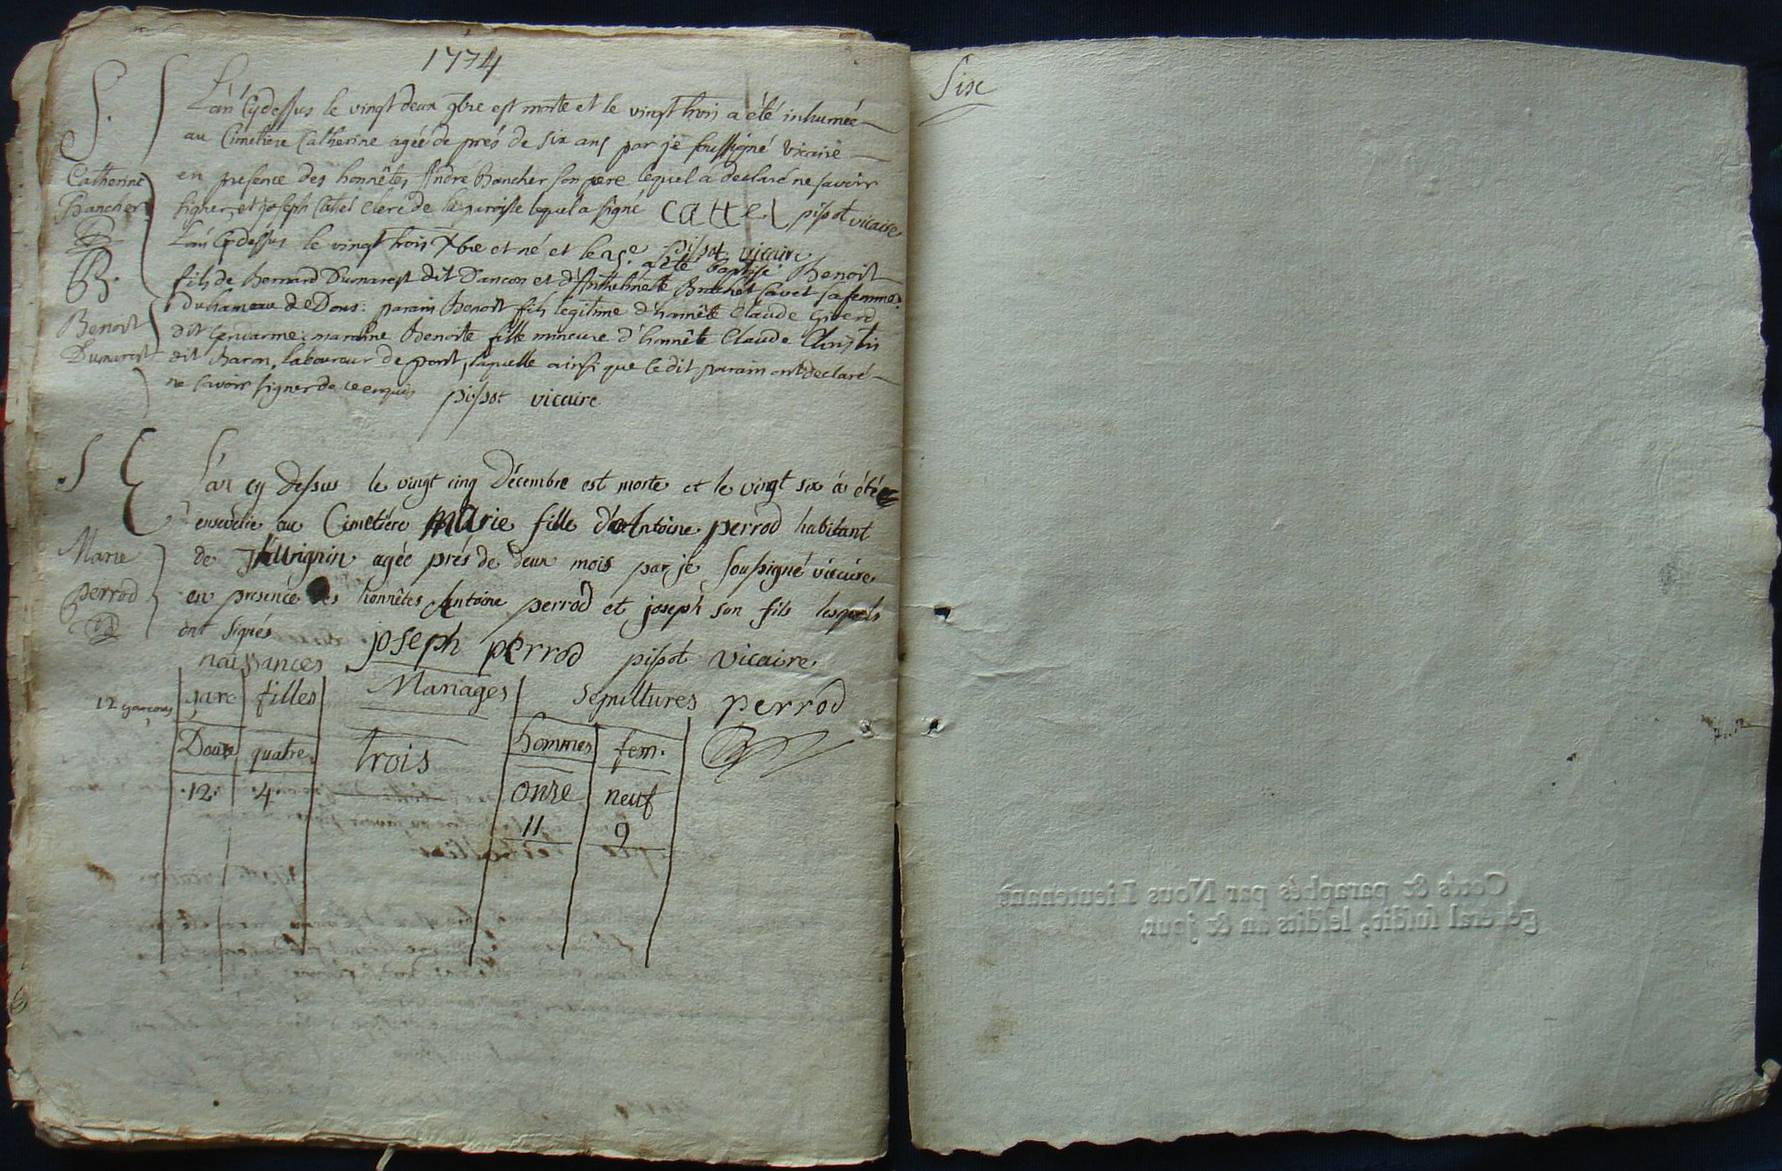 1774
S.
L'an Cydessus le vingt deux 9bre est morte et le vingt trois a été inhumée
au Cimetiere Catherine agée de prés de six ans par je soussigné vicaire
Catherine
Bancher
en presence des honnêtes André Bancher son pere lequel a declaré ne savoir
signer, et joseph Catel clerc de la paroisse lequel a signé cattel pissot vicaire
B.
Benoit
Dumarest
L'an Cydessus le vingt trois Xbre est né et le 25e a été baptisé Benoit
pissot vicaire
fils de Bernard Dumarest dit Dancon et d'Anthelmette Brochet Cavet sa femme
du hameau de Dons: parain Benoit fils légitime d'honnête Claude Giverd
dit Gendarme: maraine Benoite fille mineure d'honnête Claude
dit Baron, laboureur de pont, laquelle ainsi que le dit parain ont declaré
ne savoir signer de ce enquis pissot vicaire
S
L'an cy dessus le vingt cinq Décembre est morte et le vingt six à été
ensevelie au Cimetiére Marie fille d'Antoine perrod habitant
Marie
perrod
de agée prés de deux mois par je soussigné vicaire
en presence des honnêtes Antoine perrod et joseph son fils lesquels
ont signés joseph perrod pissot vicaire
perrod
naissances Mariages sepultures
12 garcons garc filles hommes fem.
Douze quatre trois onze neuf
12. 4 11 9
Six
Cotés & paraphés par Nous Lieutenant
général susdit, lesdits an & jour.